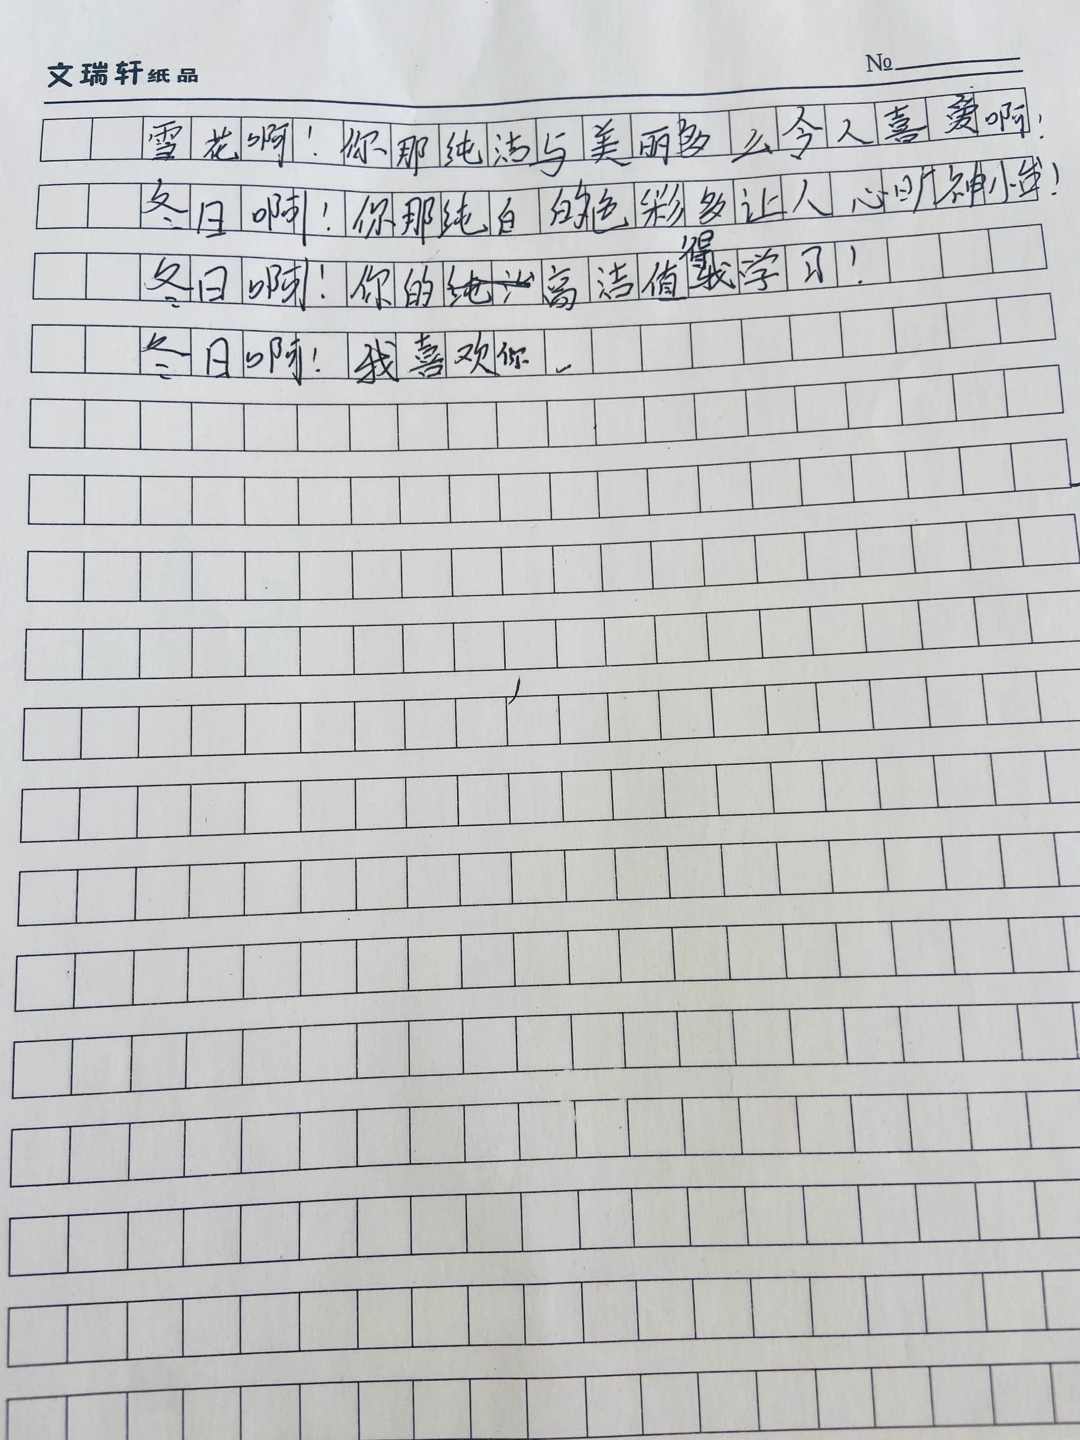 文瑞轩纸品 №
雪花啊！你那纯洁与美丽多么令人喜爱啊！
冬日啊！你那纯白的色彩多让人心旷神怡！
冬日啊！你的高洁值得我学习！
冬日啊！我喜欢你。